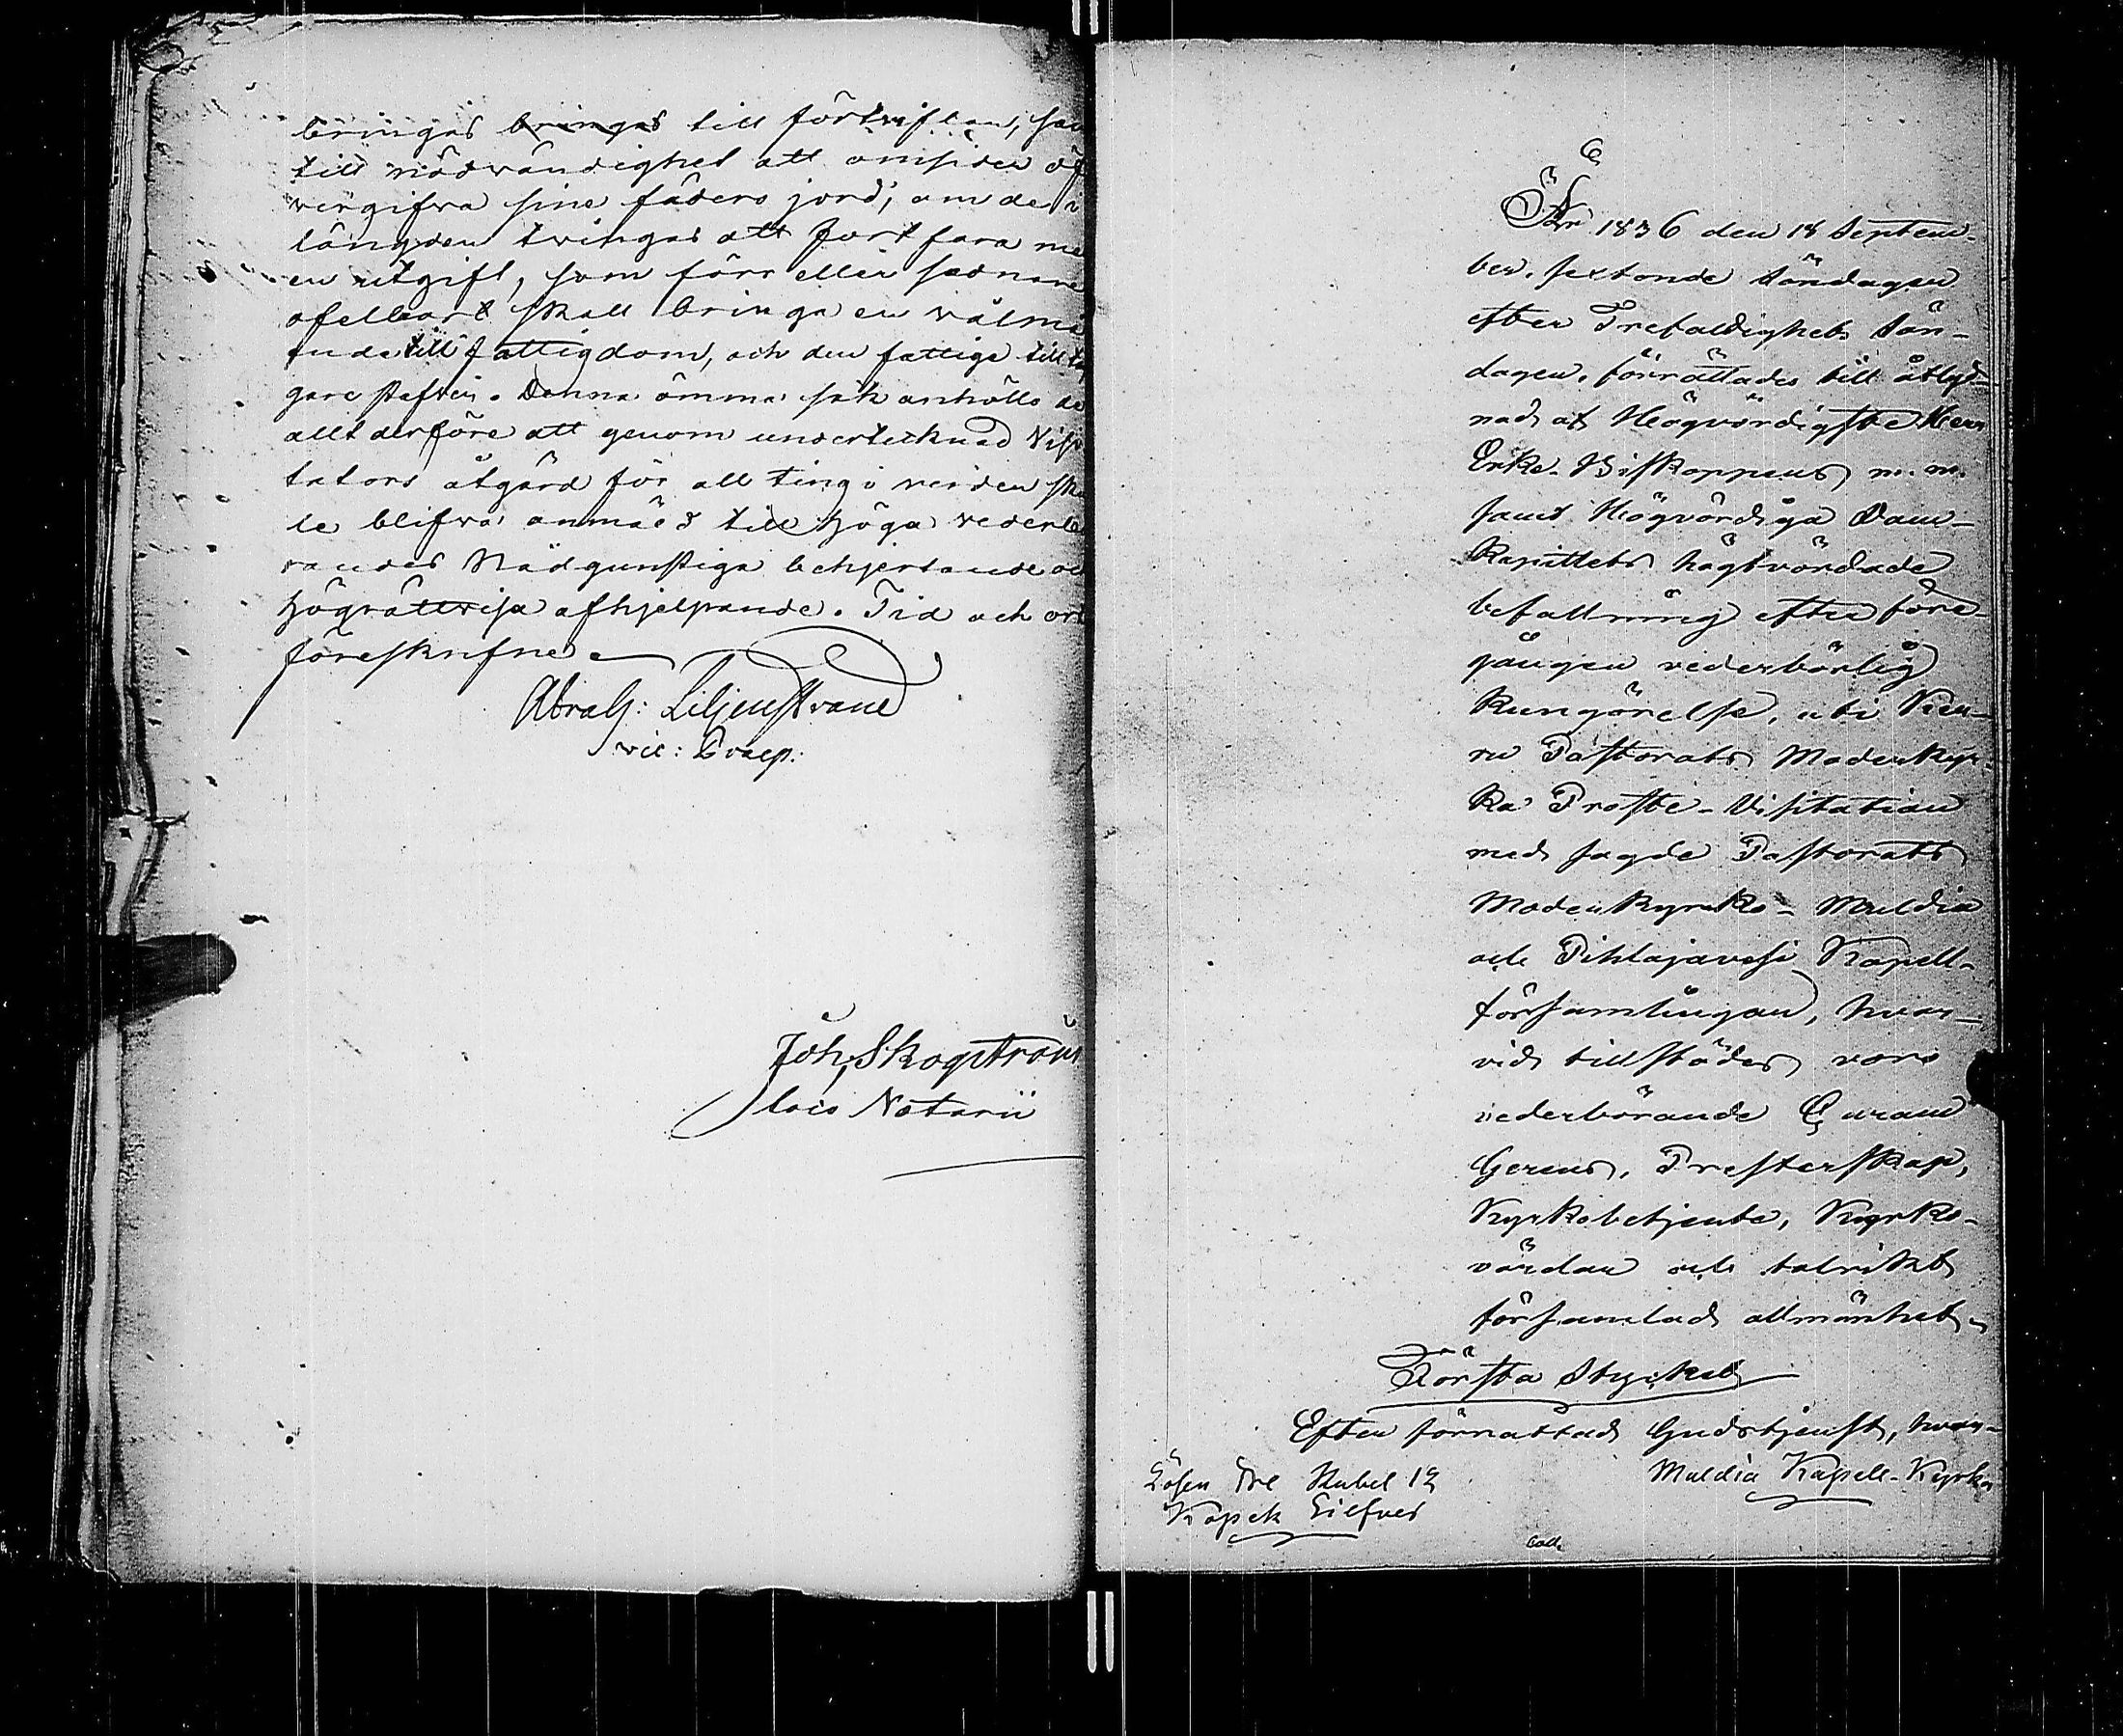 bringas bringas till förtviflan, sam
till nödvändighet att omsider öf
vergifva sine fäders jord, om de i
längden tvingas att fortfara me
en utgift, som förr eller sednare
ofelbart skall bringa en välmå
ende till fattigdom, och den fattige till
gare stafven. Denna ömma sak anhölls de
allt derföre att genom undertecknad Visi
tators åtgärd för all ting i verlden sku
le blifva anmäld till Höga vederbö
randes Nådgunstiga behjertande och
Högrättvisa afhjelpande. Tid och ort
föreskrifne
Abrah: Liljenstrand
vic: Praep:
Joh, Skogström
loco Notarii
År 1836 den 18 Septem-
ber, sextonde Söndagen
efter Trefaldighets Sön-
dagen, förrättades till åtlyd-
nad af Högvördigste Herr
Erke-Biskoppens m. m.
samt Högvördiga Dom-
Kapitlets högtvördade
befallning efter före-
gången vederbörlig
Kungörelse, uti Keu-
ru Pastorats Moderkyr-
ka Proste-Visitation
med sagde Pastorats
Moderkyrko- Muldia
och Pihlajavesi Kapell-
församlingar, hvar-
vid tillstädes voro
vederbörande Curam
Gerens, Presterskap,
Kyrkobetjente, Kyrko-
värdar och talrikt
församlad allmänhet.
Första Stycket
Efter förrättad Gudstjenst, hvar-
Lösen Tre Rubel 12
Kopek Silfver
Muldia Kapell-Kyrka
Coll.